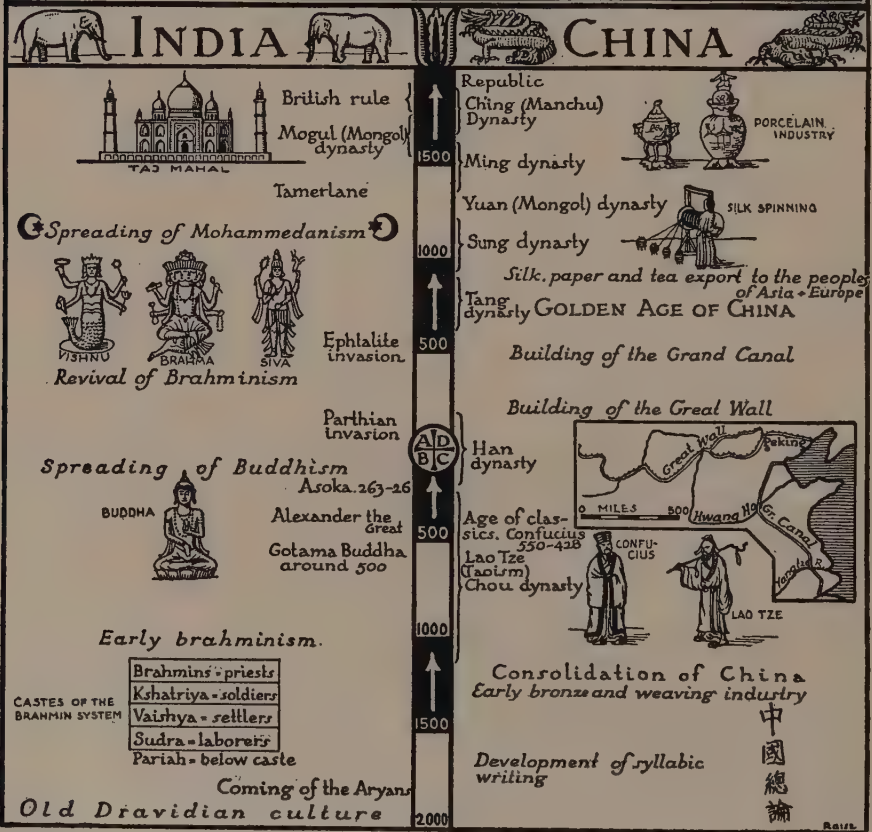 INDIA
CHINA
TAJ MAHAL
British rule
Mogul (Mongol)
dynasty
Tamerlane
Spreading of Mohammedanism
VISHNU
BRAHMA
SIVA
Ephtalite
invasion
Revival of Brahminism
Parthian
invasion
Spreading of Buddhism
Asoka. 263-26
BUDDHA
Alexander the
Great
Gotama Buddha
around 500
Early brahminism.
CASTES OF THE
BRAHMIN SYSTEM
Brahmins = priests
Kshatriya = soldiers
Vaishya = settlers
Sudra = laborers
Pariah = below caste
Coming of the Aryans
Old Dravidian culture
1500
1000
500
AD
BC
500
1000
1500
2000
Republic
Ching (Manchu)
Dynasty
PORCELAIN
INDUSTRY
Ming dynasty
Yuan (Mongol) dynasty
SILK SPINNING
Sung dynasty
Silk, paper and tea export to the peoples
of Asia + Europe
Tang
dynasty
GOLDEN AGE OF CHINA
Building of the Grand Canal
Building of the Great Wall
Han
dynasty
Great Wall
Peking
0 MILES 500
Hwang Ho
Gr. Canal
Yangtse R.
Age of clas-
sics. Confucius
550-428
Lao Tze
(Taoism)
Chou dynasty
CONFU-
CIUS
LAO TZE
Consolidation of China
Early bronze and weaving industry
Development of syllabic
writing
中
國
總
論
Raisz